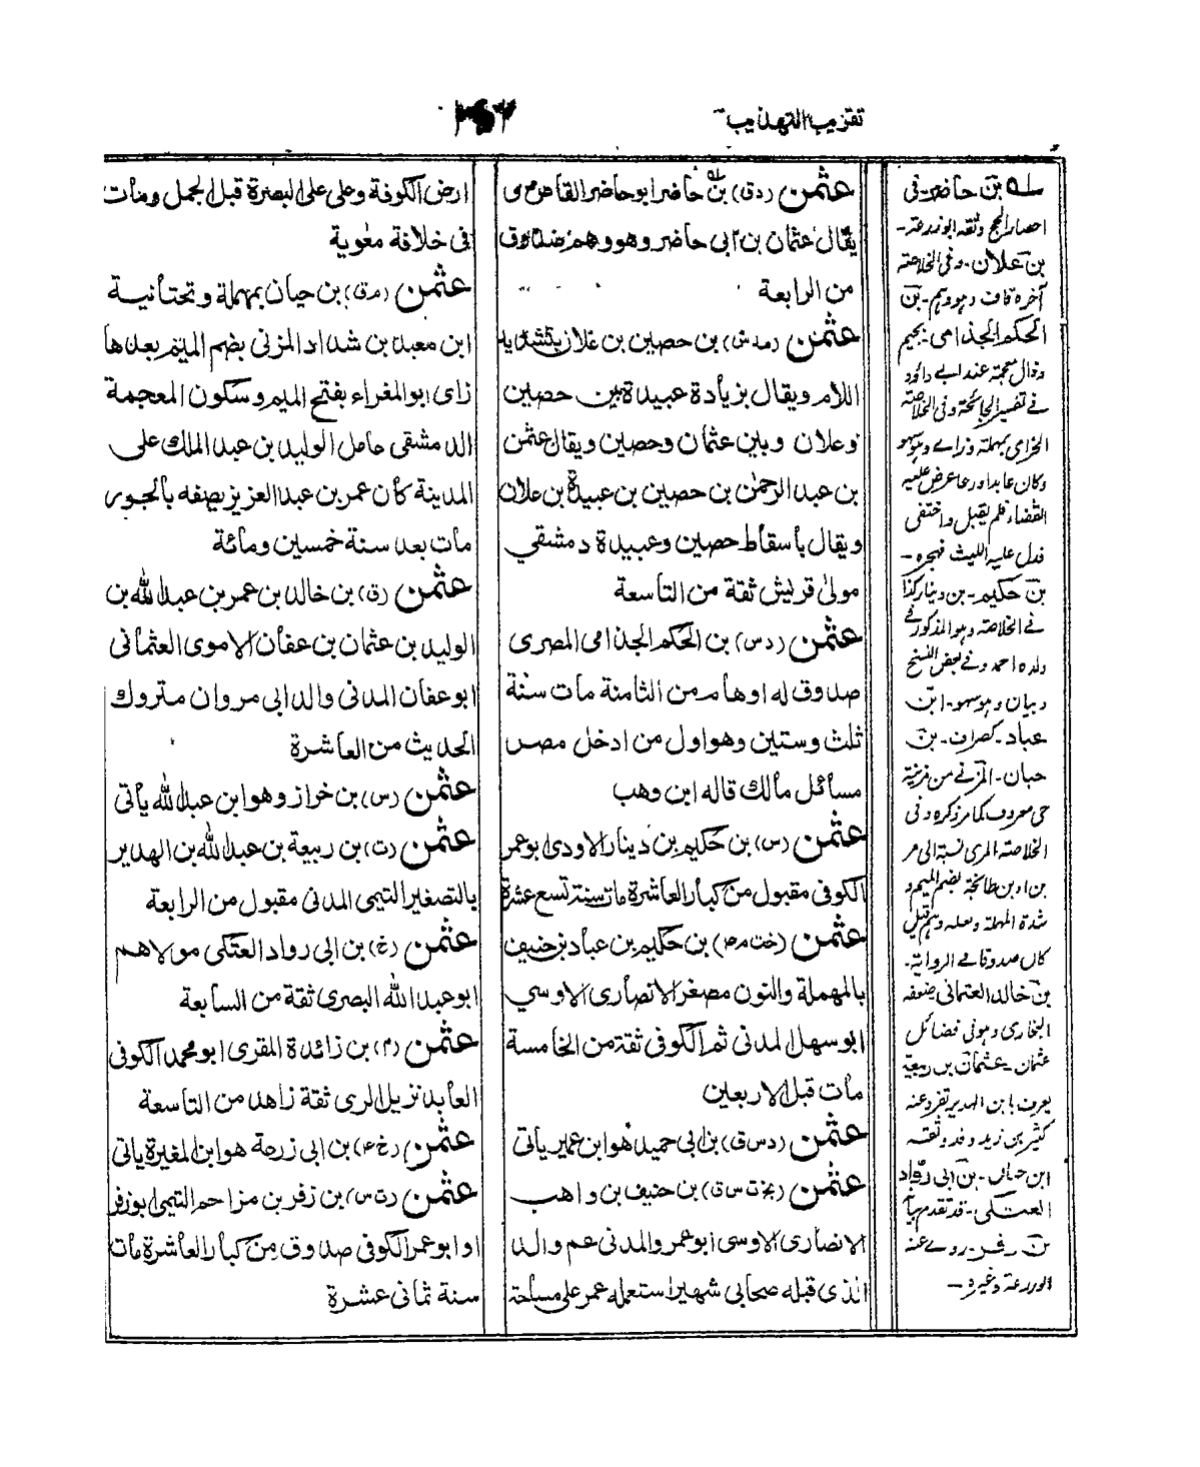 تقريب التهذيب
عثمن (دق) بن حاضر ابو حاضر القاص
يقال عثمان بن ابى حاضر وهو وهم صدوق
من الرابعة
عثمن (مدس) بن حصين بن علان بتشديد
اللام ويقال بزيادة عبيدة بين حصين
وعلان وبين عثمان وحصين ويقال عثمن
بن عبد الرحمن بن حصين بن عبيدة بن علان
ويقال بأسقاط حصين وعبيدة دمشقي
مولى قريش ثقة من التاسعة
عثمن (دس) بن الحكم الجذامى المصرى
صدوق له اوهام من الثامنة مات سنة
ثلث وستين وهو اول من ادخل مصر
مسائل مالك قاله ابن وهب
عثمن (س) بن حكيم بن دينار الاودى ابو عمر
الكوفى مقبول من كبار العاشرة مات سنة تسع عشرة
عثمن (خت م ٤) بن حكيم بن عباد بن حنيف
بالمهملة والنون مصغر الانصارى الاوسي
ابو سهل المدنى ثم الكوفى ثقة من الخامسة
مات قبل الاربعين
عثمن (دس ق) بن ابى حميد هو ابن عمير يأتى
عثمن (بخ ت س ق) بن حنيف بن واهب
الانصارى الاوسى ابو عمرو المدنى عم والد
الذى قبله صحابى شهير استعمله عمر على مساحة
ارض الكوفة وعلى على البصرة قبل الجمل ومات
فى خلافة معوية
عثمن (مق) بن حيان بمهملة وتحتانية
ابن معبد بن شداد المزنى بضم الميم بعدها
زاى ابو المغراء بفتح الميم وسكون المعجمة
الدمشقى عامل الوليد بن عبد الملك على
المدينة كان عمر بن عبد العزيز يصفه بالجور
مات بعد سنة خمسين ومائة
عثمن (ق) بن خالد بن عمر بن عبد الله بن
الوليد بن عثمان بن عفان الاموى العثمانى
ابو عفان المدنى والد ابى مروان متروك
الحديث من العاشرة
عثمن (س) بن خرزاد وهو ابن عبد الله يأتى
عثمن (ت) بن ربيعة بن عبد الله بن الهدير
بالتصغير التيمى المدنى مقبول من الرابعة
عثمن (خ) بن ابى رواد العتكى مولاهم
ابو عبد الله البصرى ثقة من السابعة
عثمن (م) بن زائدة المقرى ابو محمد الكوفى
العابد نزيل الرى ثقة زاهد من التاسعة
عثمن (خ ٤) بن ابى زرعة هو ابن المغيرة يأتى
عثمن (ت س) بن زفر بن مزاحم التيمى ابو زفر
او ابو عمر الكوفى صدوق من كبار العاشرة مات
سنة ثمانى عشرة
له بن حاضر ـ فى
بن علان ـ وفى الخلاصة
آخره قاف وهو وهم ـ بن
الحكم الجذامى ـ بجيم
القضاء فلم يقبل واختفى
فدل عليه الليث فهجره ـ
بن حكيم ـ بن دينار كذا
فى الخلاصة وهو المذكور فى
ولده احمد وفى بعض النسخ
عباد ـ كصراف ـ بن
كان صدوقا فى الرواية ـ
بن خالد العثمانى ضعفه
البخارى وهو فى فضائل
عثمان ـ عثمان بن ربيعة
يعرف بابن الهدير تفرد عنه
كثير بن زيد وقد وثقه
ابن حبان ـ بن ابى رواد
العتكى ـ قد تقدم
بن زفر ـ روى عنه
ابو زرعة وغيره ـ